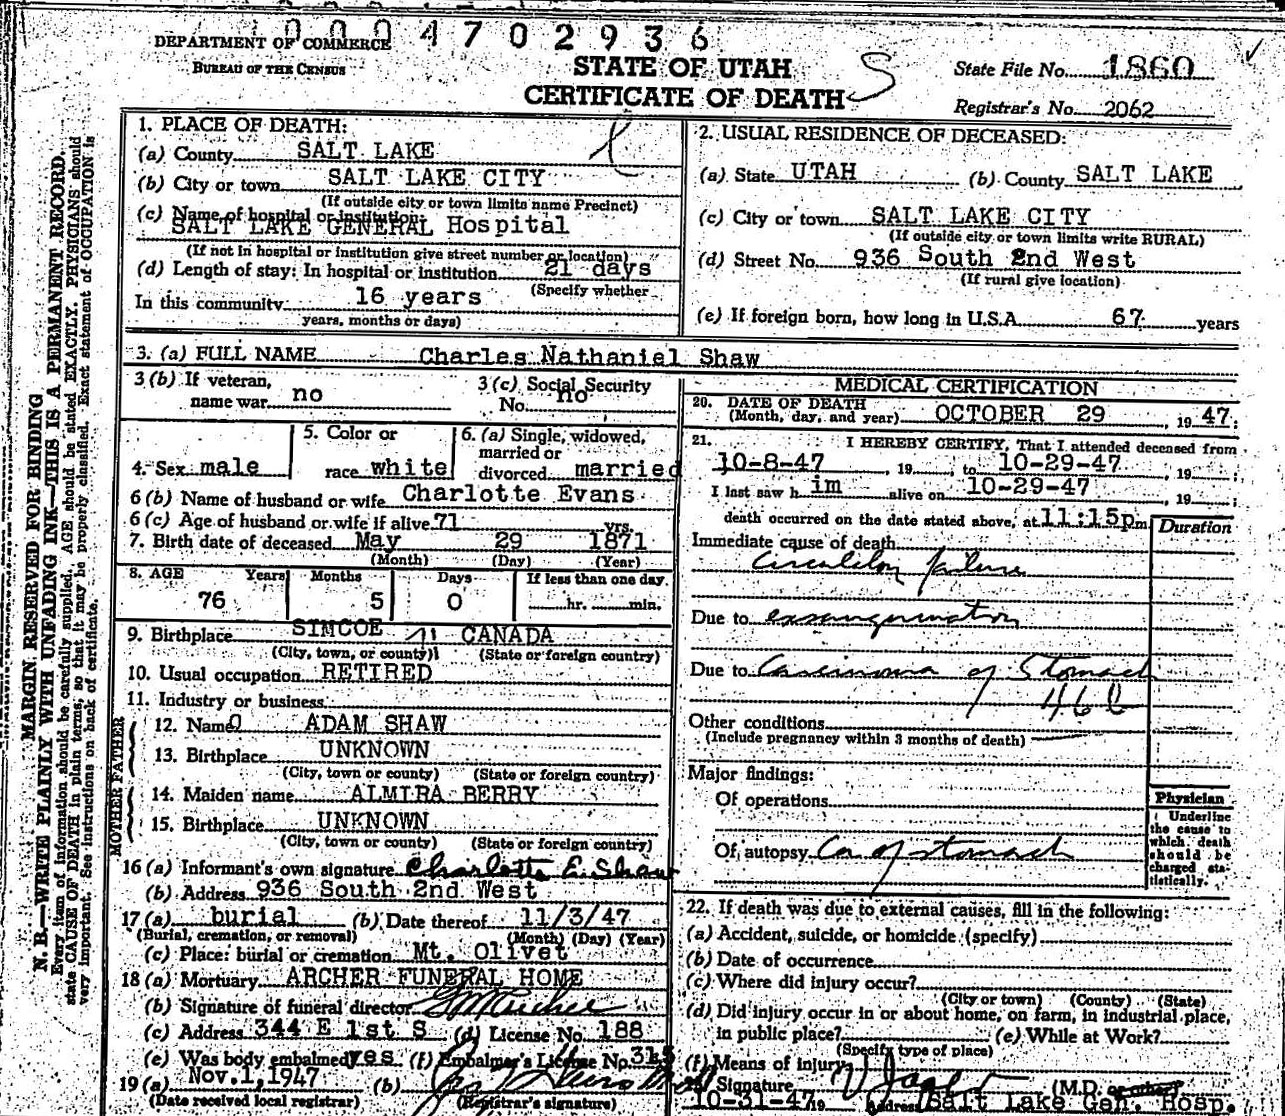 0004702936
DEPARTMENT OF COMMERCE
BUREAU OF THE CENSUS
STATE OF UTAH
CERTIFICATE OF DEATH
S
State File No. 1860
Registrar's No. 2062
MARGIN RESERVED FOR BINDING
N. B.—WRITE PLAINLY WITH UNFADING INK—THIS IS A PERMANENT RECORD.
Every item of information should be carefully supplied. AGE should be stated EXACTLY. PHYSICIANS should
state CAUSE OF DEATH in plain terms, so that it may be properly classified. Exact statement of OCCUPATION is
very important. See instructions on back of certificate.
1. PLACE OF DEATH:
(a) County SALT LAKE
(b) City or town SALT LAKE CITY
(If outside city or town limits name Precinct)
(c) Name of hospital or institution:
SALT LAKE GENERAL Hospital
(If not in hospital or institution give street number or location)
(d) Length of stay: In hospital or institution 21 days
(Specify whether
In this community 16 years
years, months or days)
2. USUAL RESIDENCE OF DECEASED:
(a) State UTAH (b) County SALT LAKE
(c) City or town SALT LAKE CITY
(If outside city or town limits write RURAL)
(d) Street No. 936 South 2nd West
(If rural give location)
(e) If foreign born, how long in U.S.A. 67 years
3. (a) FULL NAME Charles Nathaniel Shaw
3 (b) If veteran,
name war no
3 (c) Social Security
No. no
4. Sex male
5. Color or
race white
6. (a) Single, widowed,
married or
divorced married
6 (b) Name of husband or wife Charlotte Evans
6 (c) Age of husband or wife if alive 71 yrs.
7. Birth date of deceased May 29 1871
(Month) (Day) (Year)
8. AGE Years Months Days If less than one day
76 5 0 hr. min.
9. Birthplace SIMCOE CANADA
(City, town, or county) (State or foreign country)
10. Usual occupation RETIRED
11. Industry or business
FATHER
12. Name ADAM SHAW
13. Birthplace UNKNOWN
(City, town or county) (State or foreign country)
MOTHER
14. Maiden name ALMIRA BERRY
15. Birthplace UNKNOWN
(City, town or county) (State or foreign country)
16 (a) Informant's own signature Charlotte E. Shaw
(b) Address 936 South 2nd West
17 (a) burial (b) Date thereof 11/3/47
(Burial, cremation, or removal) (Month) (Day) (Year)
(c) Place: burial or cremation Mt. Olivet
18 (a) Mortuary ARCHER FUNERAL HOME
(b) Signature of funeral director
(c) Address 344 E 1st S (d) License No. 188
(e) Was body embalmed yes (f) Embalmer's License No. 315
19 (a) Nov. 1, 1947 (b)
(Date received local registrar) (Registrar's signature)
MEDICAL CERTIFICATION
20. DATE OF DEATH
(Month, day, and year) OCTOBER 29 , 19 47.
21. I HEREBY CERTIFY, That I attended deceased from
10-8-47 , 19 to 10-29-47 , 19 ;
I last saw h im alive on 10-29-47 , 19 ;
death occurred on the date stated above, at 11:15pm
Duration
Immediate cause of death
failure
Due to exsanguination
Due to Carcinoma of Stomach
46 b
Other conditions
(Include pregnancy within 3 months of death)
Major findings:
Of operations
Of autopsy Ca of stomach
Physician
Underline
the cause to
which death
should be
charged sta-
tistically.
22. If death was due to external causes, fill in the following:
(a) Accident, suicide, or homicide (specify)
(b) Date of occurrence
(c) Where did injury occur?
(City or town) (County) (State)
(d) Did injury occur in or about home, on farm, in industrial place,
in public place? (e) While at Work?
(Specify type of place)
(f) Means of injury
Signature (M.D. or other)
10-31-47 19 Address Salt Lake Gen. Hosp.